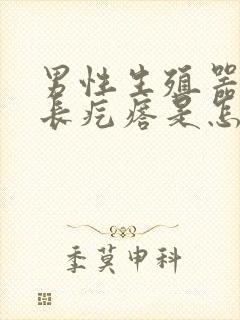 男性生殖器
长疙瘩是怎
季莫申科